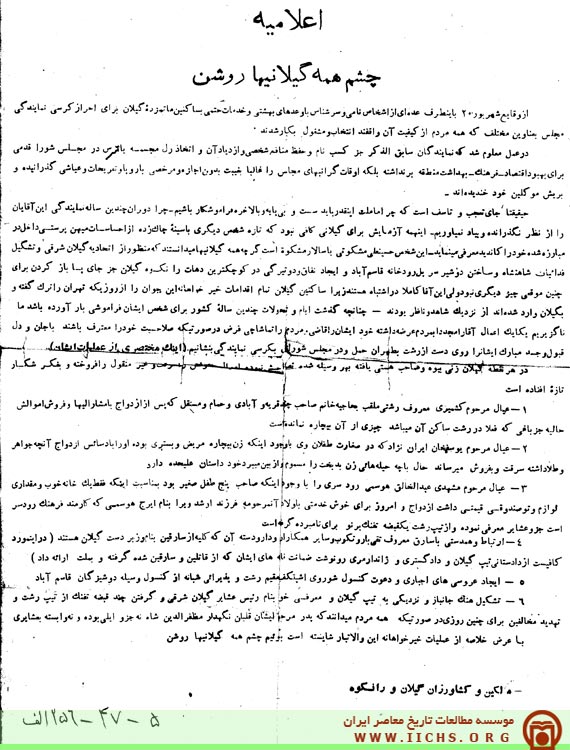 اعلامیه
چشم همه گیلانیها روشن
از وقایع شهریور ۲۰ باینطرف عده‌ای از اشخاص نامی و سرشناس با وعدهای بهشتی و خدمات حتمی بساکنین ماتمزدهٔ گیلان برای احراز کرسی نمایندگی
مجلس بعناوین مختلف که همه مردم از کیفیت آن واقفند انتخاب و مشغول بکار شدند
در عمل معلوم شد که نمایندگان سابق الذکر جز کسب نام و حفظ منافع شخصی و ازدیاد آن و اتخاذ رل مجسمه در مجلس شورا قدمی
برای بهبود اقتصاد ـ فرهنگ ـ بهداشت منطقه برنداشته بلکه اوقات گرانبهای مجلس را غالبا بغیبت بدون اجازه و مرخصی باروپا و تفریحات و عیاشی گذرانیده و
بریش موکلین خود خندیده‌اند ـ
حقیقتا جای تعجب و تاسف است که چرا ما ملت اینقدر باید سست و بی‌پایه و بالاخره فراموشکار باشیم ـ چرا دوران چندین ساله نمایندگی این آقایان
را از نظر نگذرانده و بیاد نیاوریم ـ اینهمه آزمایش برای گیلانی کافی نبود که تازه شخص دیگری باسینهٔ چاک‌زده از احساسات میهن پرستی داخل در
مبارزه شده خود را کاندید معرفی مینماید ـ این شخص حسینعلی مشکوتی یا سالار مشکوة است گرچه همه گیلانیها میدانستند که منظور از اتحادیه گیلان شرقی و تشکیل
فدائیان شاهنشاه و ساختن دو شیر سر پل رودخانه قاسم‌آباد و ایجاد نفاق و دو تیرگی در کوچکترین دهات رانکوه گیلان جز جای پا باز کردن برای
چنین موقعی چیز دیگری نبود ولی این آقا کاملا در اشتباه هستند زیرا ساکنین گیلان تمام اقدامات خیر خواهانه این جوان را از روزیکه تهران را ترک گفته و
بگیلان وارد شده‌اند از نزدیک شاهد و ناظر بودند ـ چنانچه گذشت ایام و تحولات چندین سالهٔ کشور برای شخص ایشان فراموشی بار آورده باشد ما
ناگزیریم یکایک اعمال آقا را مجددا بمردم عرضه داشته خود ایشان را قاضی و مردم را تماشاچی فرض در صورتیکه صلاحیت خود را معترف باشند با جان و دل
قبول و جسد مبارک ایشان را روی دست از رشت بطهران حمل و در مجلس شورا بکرسی نمایندگی بنشانیم (اینک مختصری از عملیات ایشان).
در هر نقطه گیلان زنی بیوه و صاحب هستی یافته بهر وسیله شده و غیر منقول را فروخته و بفکر شکار
تازهٔ افتاده است
۱ ـ عیال مرحوم کشمیری معروف رشتی ملقب بحاجیه خانم صاحب چند قریه و آبادی و حمام و مستقل که پس از ازدواج بامشار الیها و فروش اموالش
حالیه جز باغی که فعلا در رشت ساکن آن میباشد چیزی از آن بیچاره نمانده است
۲ ـ عیال مرحوم یوسفخان ایران نژاد که در سفارت طفلان وی باوجود اینکه زن بیچاره مریض و بستری بوده او را بادسائس ازدواج آنچه جواهر
و طلا داشته سرقت و بفروش میرساند حال باچه حیله‌هائی زن بدبخت را مسموم و از بین میبرد خود داستان علیحده دارد
۳ ـ عیال مرحوم مشهدی عبدالخالق هوسمی رود سری را با وجود اینکه صاحب پنج طفل صغیر بود بمناسبت اینکه فقط یک خانه خوب و مقداری
لوازم و تو صندوقی قیمتی داشت ازدواج و امروز برای خوش خدمتی با ولاد آنمرحومه فرزند ارشد ویرا بنام ایرج هوسمی که کارمند فرهنگ رودسر
است جزو عشایر معرفی نموده و از تیپ رشت یکقبضه تفنگ برنو برای نامبرده گرفته است
۴ ـ ارتباط و همدستی باسارق معروف تقی بارونکوب و سایر همکاران و دارو دسته آن که کلیه از سارقین بنام و زبر دست گیلان هستند (در اینمورد
کافیست از دادستانی تیپ گیلان و دادگستری و ژاندارمری رونوشت ضمانت نامه های ایشان که از قاتلین و سارقین شده گرفته و بملت ارائه داد)
۵ ـ ایجاد عروسی های اجباری و دعوت کنسول شوروی اشغلگر مقیم رشت و پذیرائی شبانه از کنسول وسیله دوشیزگان قاسم آباد
۶ ـ تشکیل هنگ جانباز و نزدیکی به تیپ گیلان و معرفی خود بنام رئیس عشایر گیلان شرقی و گرفتن چند قبضه تفنگ از تیپ رشت و
تهدید مخالفین برای چنین روزی در صورتیکه همه مردم میدانند که پدر مرحوم ایشان قلیان نگهدار مظفرالدین شاه نه جزو ایلی بوده و نه وابسته بعشایری
با عرض خلاصه از عملیات خیر خواهانه این والاتبار شایسته است بگوئیم چشم همه گیلانیها روشن
ـ مالکین و کشاورزان گیلان و رانکوه
۵ ـ ۴۷ ـ ۲۵۶ الف
موسسه مطالعات تاریخ معاصر ایران
WWW.IICHS.ORG